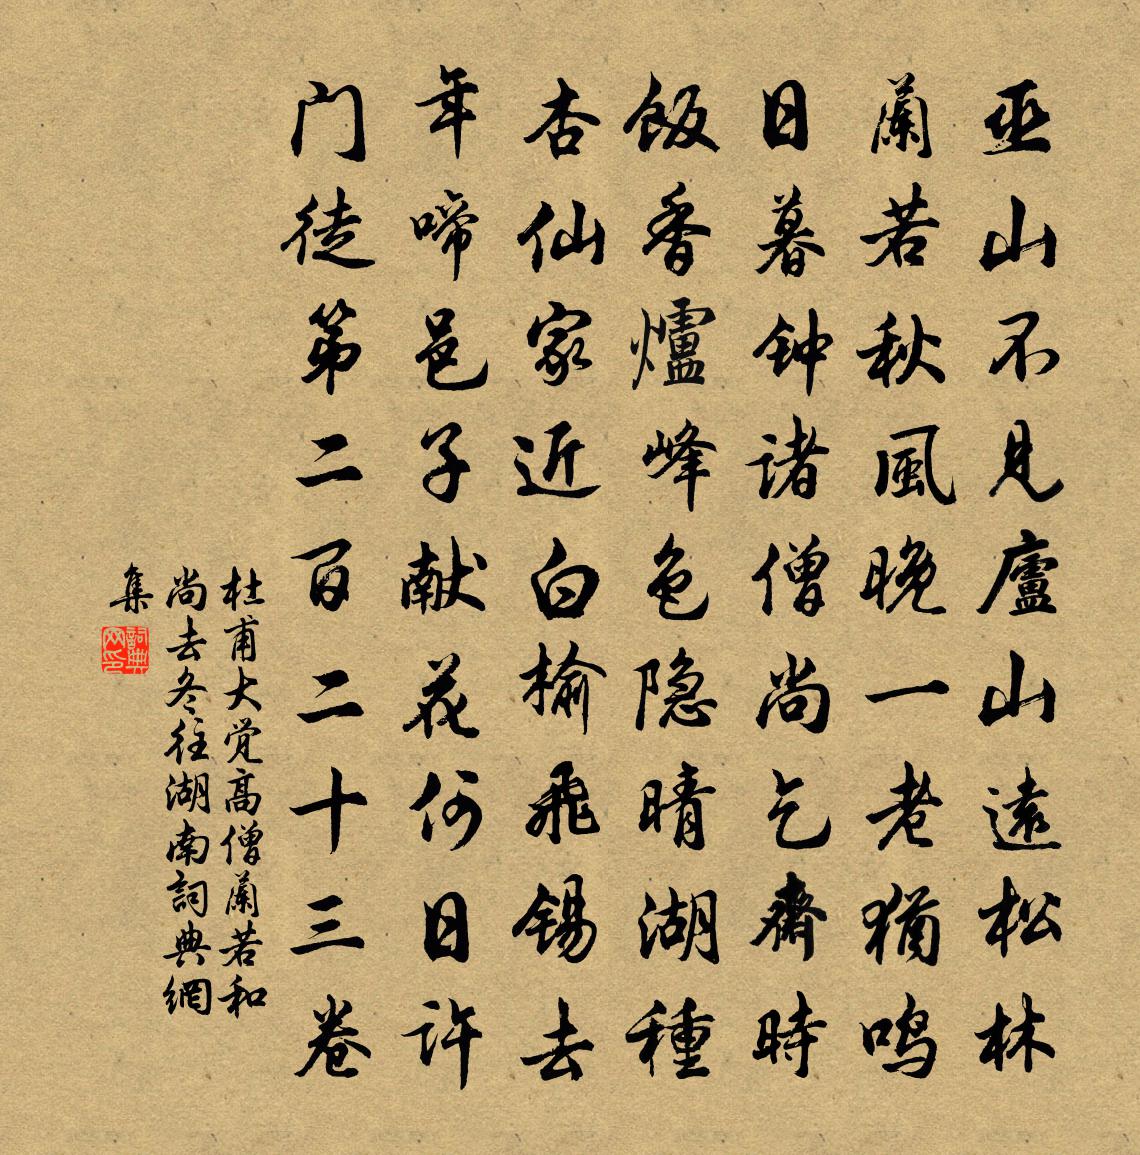 巫山不见廬山遠松林
蘭若秋風晚一老猶鸣
日暮钟诸僧尚乞齋時
飯香爐峰色隐晴湖種
杏仙家近白榆飛锡去
年啼邑子献花何日许
门徒第二百二十三卷
杜甫大觉高僧蘭若和
尚去冬往湖南詞典網
集
詞典网印